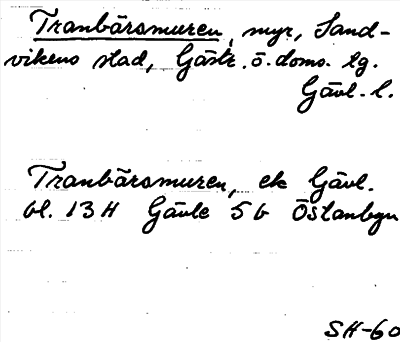 Tranbärsmuren, myr, Sand-
vikens stad, Gästr. ö. doms. lg.
Gävl. l.
Tranbärsmuren, ek Gävl.
bl. 13 H Gävle 5 b Östanbyn
SH-60